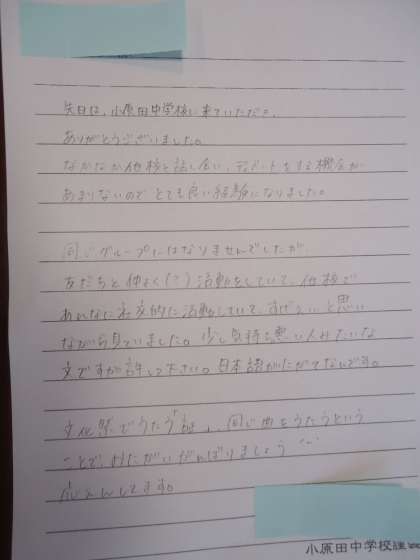 先日は、小原田中学校に来ていただき、
ありがとうございました。
なかなか他校と話し合い、ディベートをする機会が
あまりないので とても良い経験になりました。
同じグループにはなりませんでしたが、
友だちと仲よく(?)活動をしていて、他校で
あんなに社交的に活動していて、すげぇ、、と思い
ながら見ていました。少し気持ち悪い人みたいな
文ですが許して下さい。日本語がにがてなんです。
文化祭でうたう「証」、同じ曲をうたうという
ことで、おたがいがんばりましょう
応えんしてます。
小原田中学校